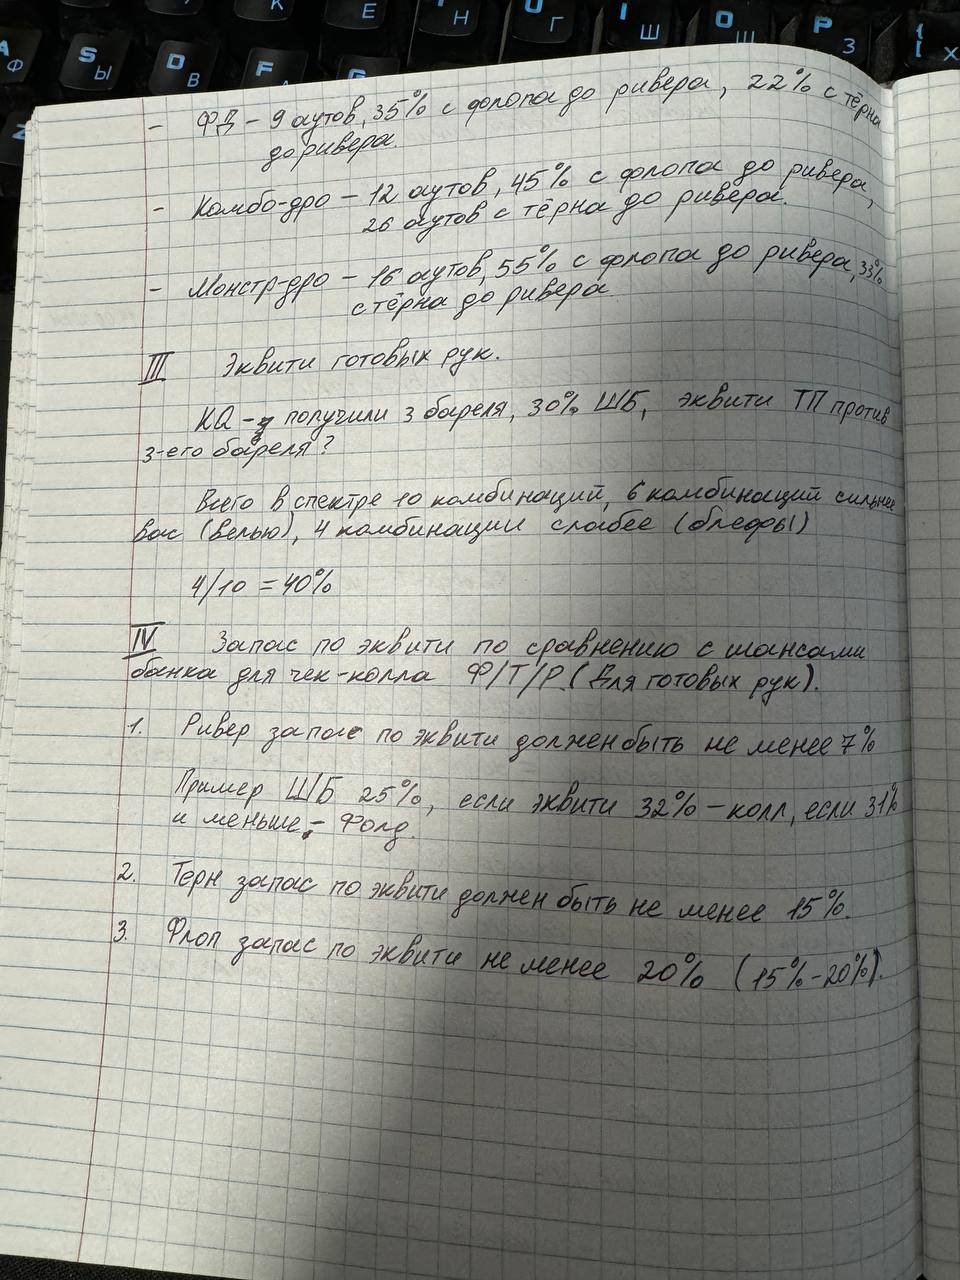 - ФД - 9 аутов, 35% с флопа до ривера, 22% с тёрна
до ривера.
- Комбо-дро - 12 аутов, 45% с флопа до ривера,
26 аутов с тёрна до ривера.
- Монстр-дро - 16 аутов, 55% с флопа до ривера, 33%
с тёрна до ривера
III Эквити готовых рук.
KQ - получили 3 бареля, 30% ШБ, эквити ТП против
3-его бареля?
Всего в спектре 10 комбинаций, 6 комбинаций сильнее
вас (велью), 4 комбинации слабее (блефы)
4/10 = 40%
IV Запас по эквити по сравнению с шансами
банка для чек-колла Ф/Т/Р. (Для готовых рук).
1. Ривер запас по эквити должен быть не менее 7%
Пример ШБ 25%, если эквити 32% - колл, если 31%
и меньше - Фолд.
2. Терн запас по эквити должен быть не менее 15%.
3. Флоп запас по эквити не менее 20% (15%-20%).